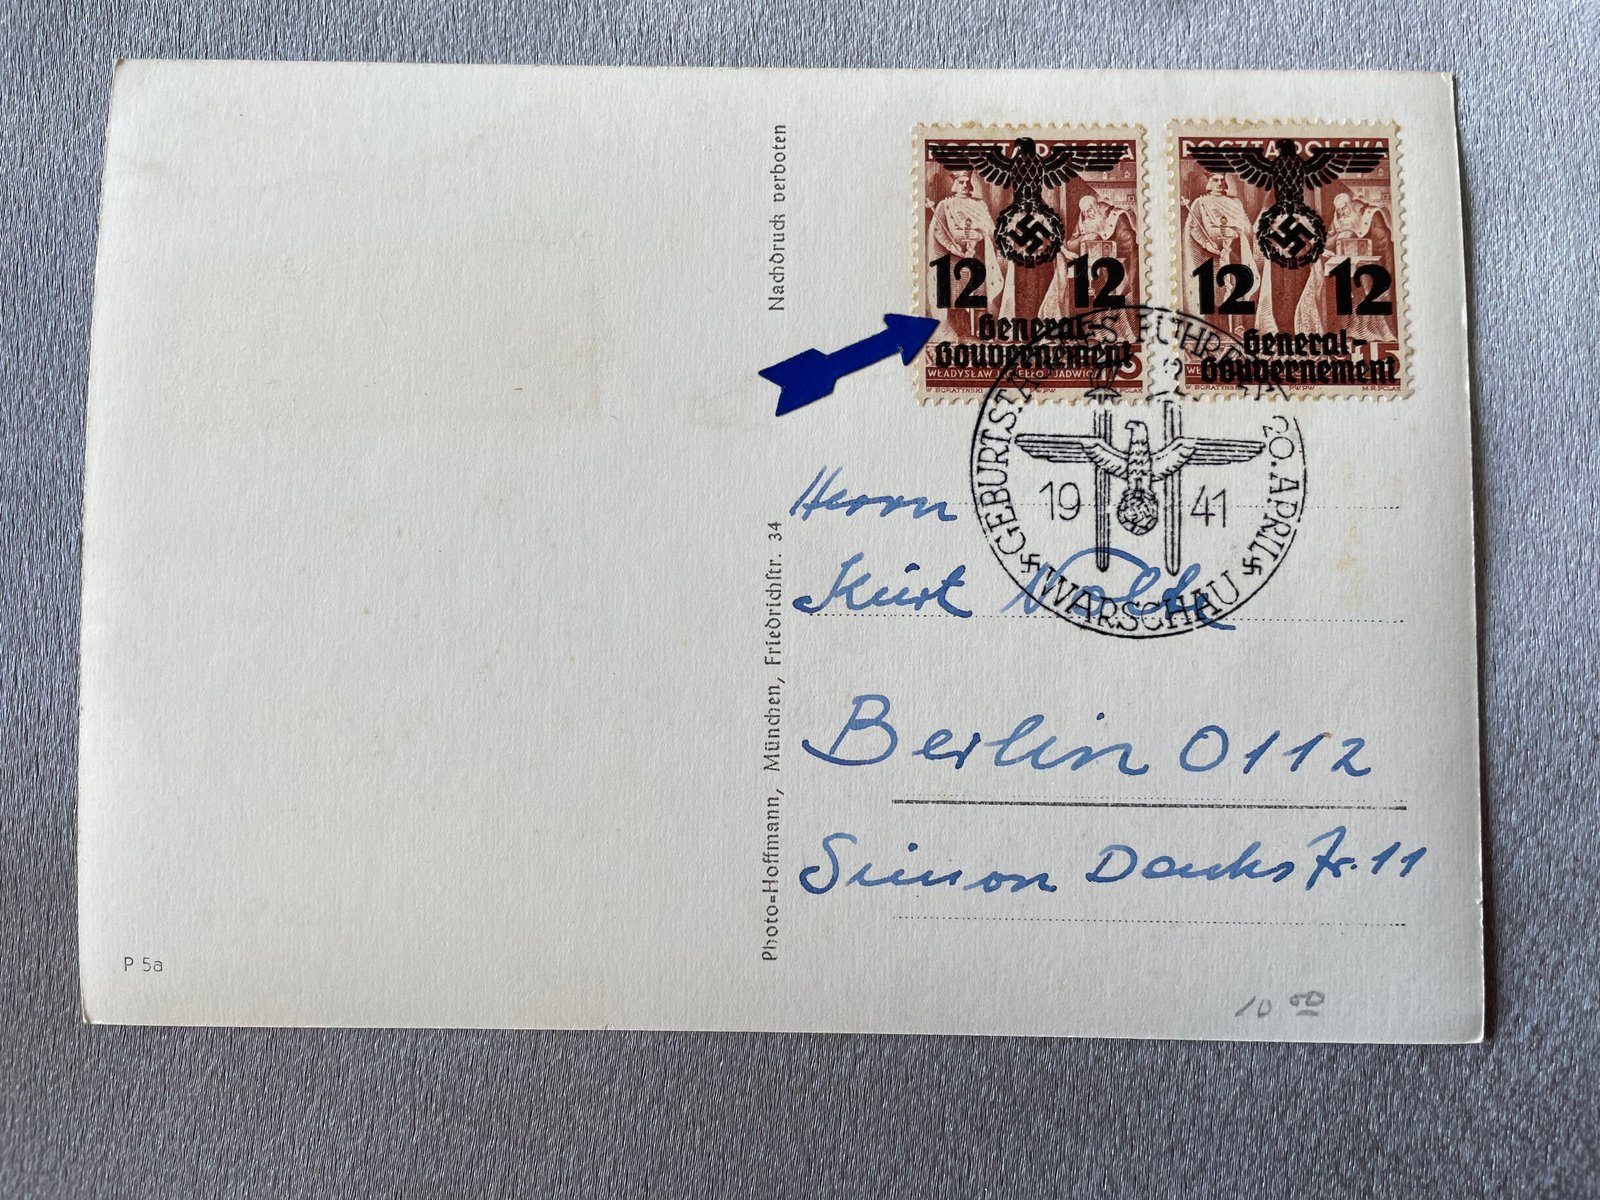 Nachdruck verboten
Photo=Hoffmann, München, Friedrichstr. 34
POCZTA POLSKA
12 12
General-
Gouvernement
15
WŁADYSŁAW JAGIEŁŁO I JADWIGA
W. BORATYŃSKI P.W.P.W. M.R. POLAK
POCZTA POLSKA
12 12
General-
Gouvernement
15
W. BORATYŃSKI P.W.P.W. M.R. POLAK
GEBURTSTAG DES FÜHRERS 20. APRIL
19 41
WARSCHAU
Herrn
Kurt Nolte
Berlin O112
Simon Dachstr. 11
P 5a
10 00